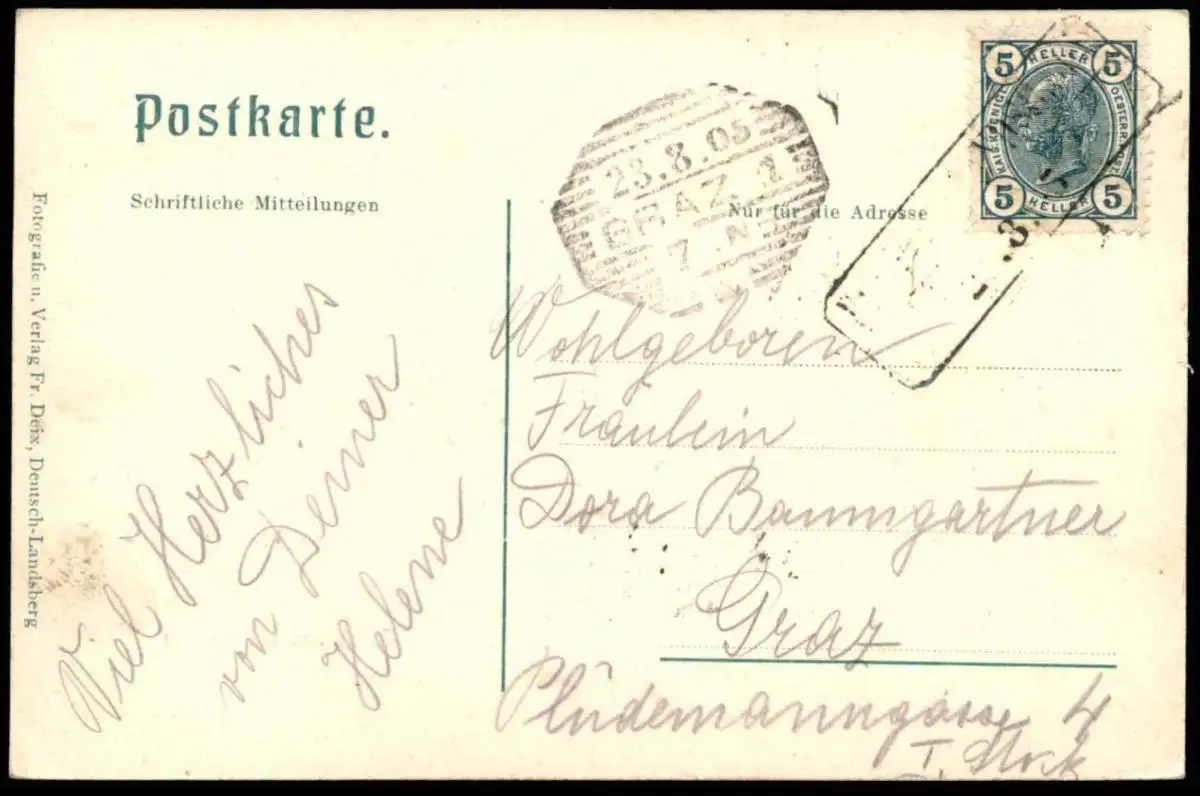 Postkarte.
Schriftliche Mitteilungen
Nur für die Adresse
Fotografie u. Verlag Fr. Deix, Deutsch-Landsberg
5 HELLER 5
KAIS. KOENIGL.
OESTERR.
5 HELLER 5
23.8.05
GRAZ. 1
7 N
Viel Herzliches
von Deiner
Helene
Wohlgeboren
Fräulein
Dora Baumgartner
Graz
Plüdemanngasse 4
I. Stock